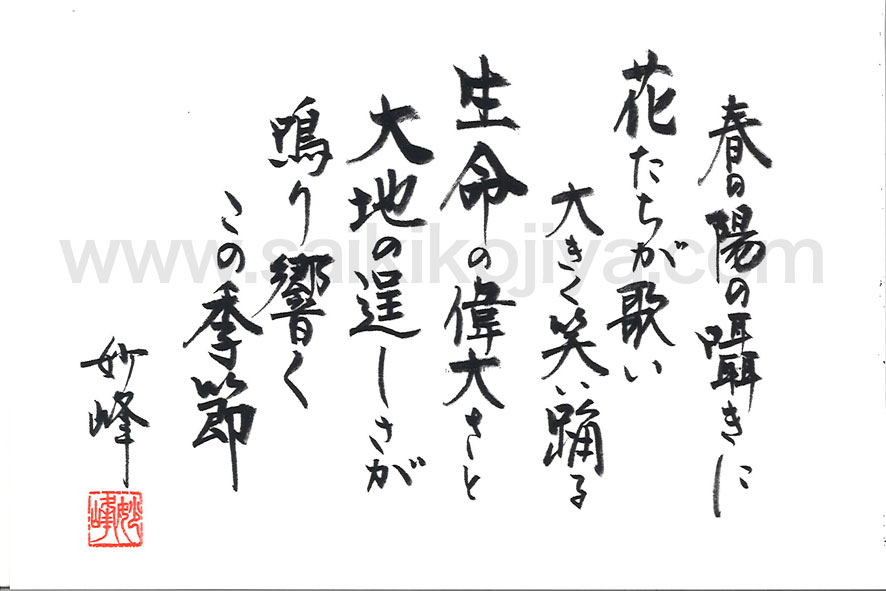 春の陽の囁きに
花たちが歌い
大きく笑い踊る
生命の偉大さと
大地の逞しさが
鳴り響く
この季節
妙峰
妙峰
www.saihikojiya.com